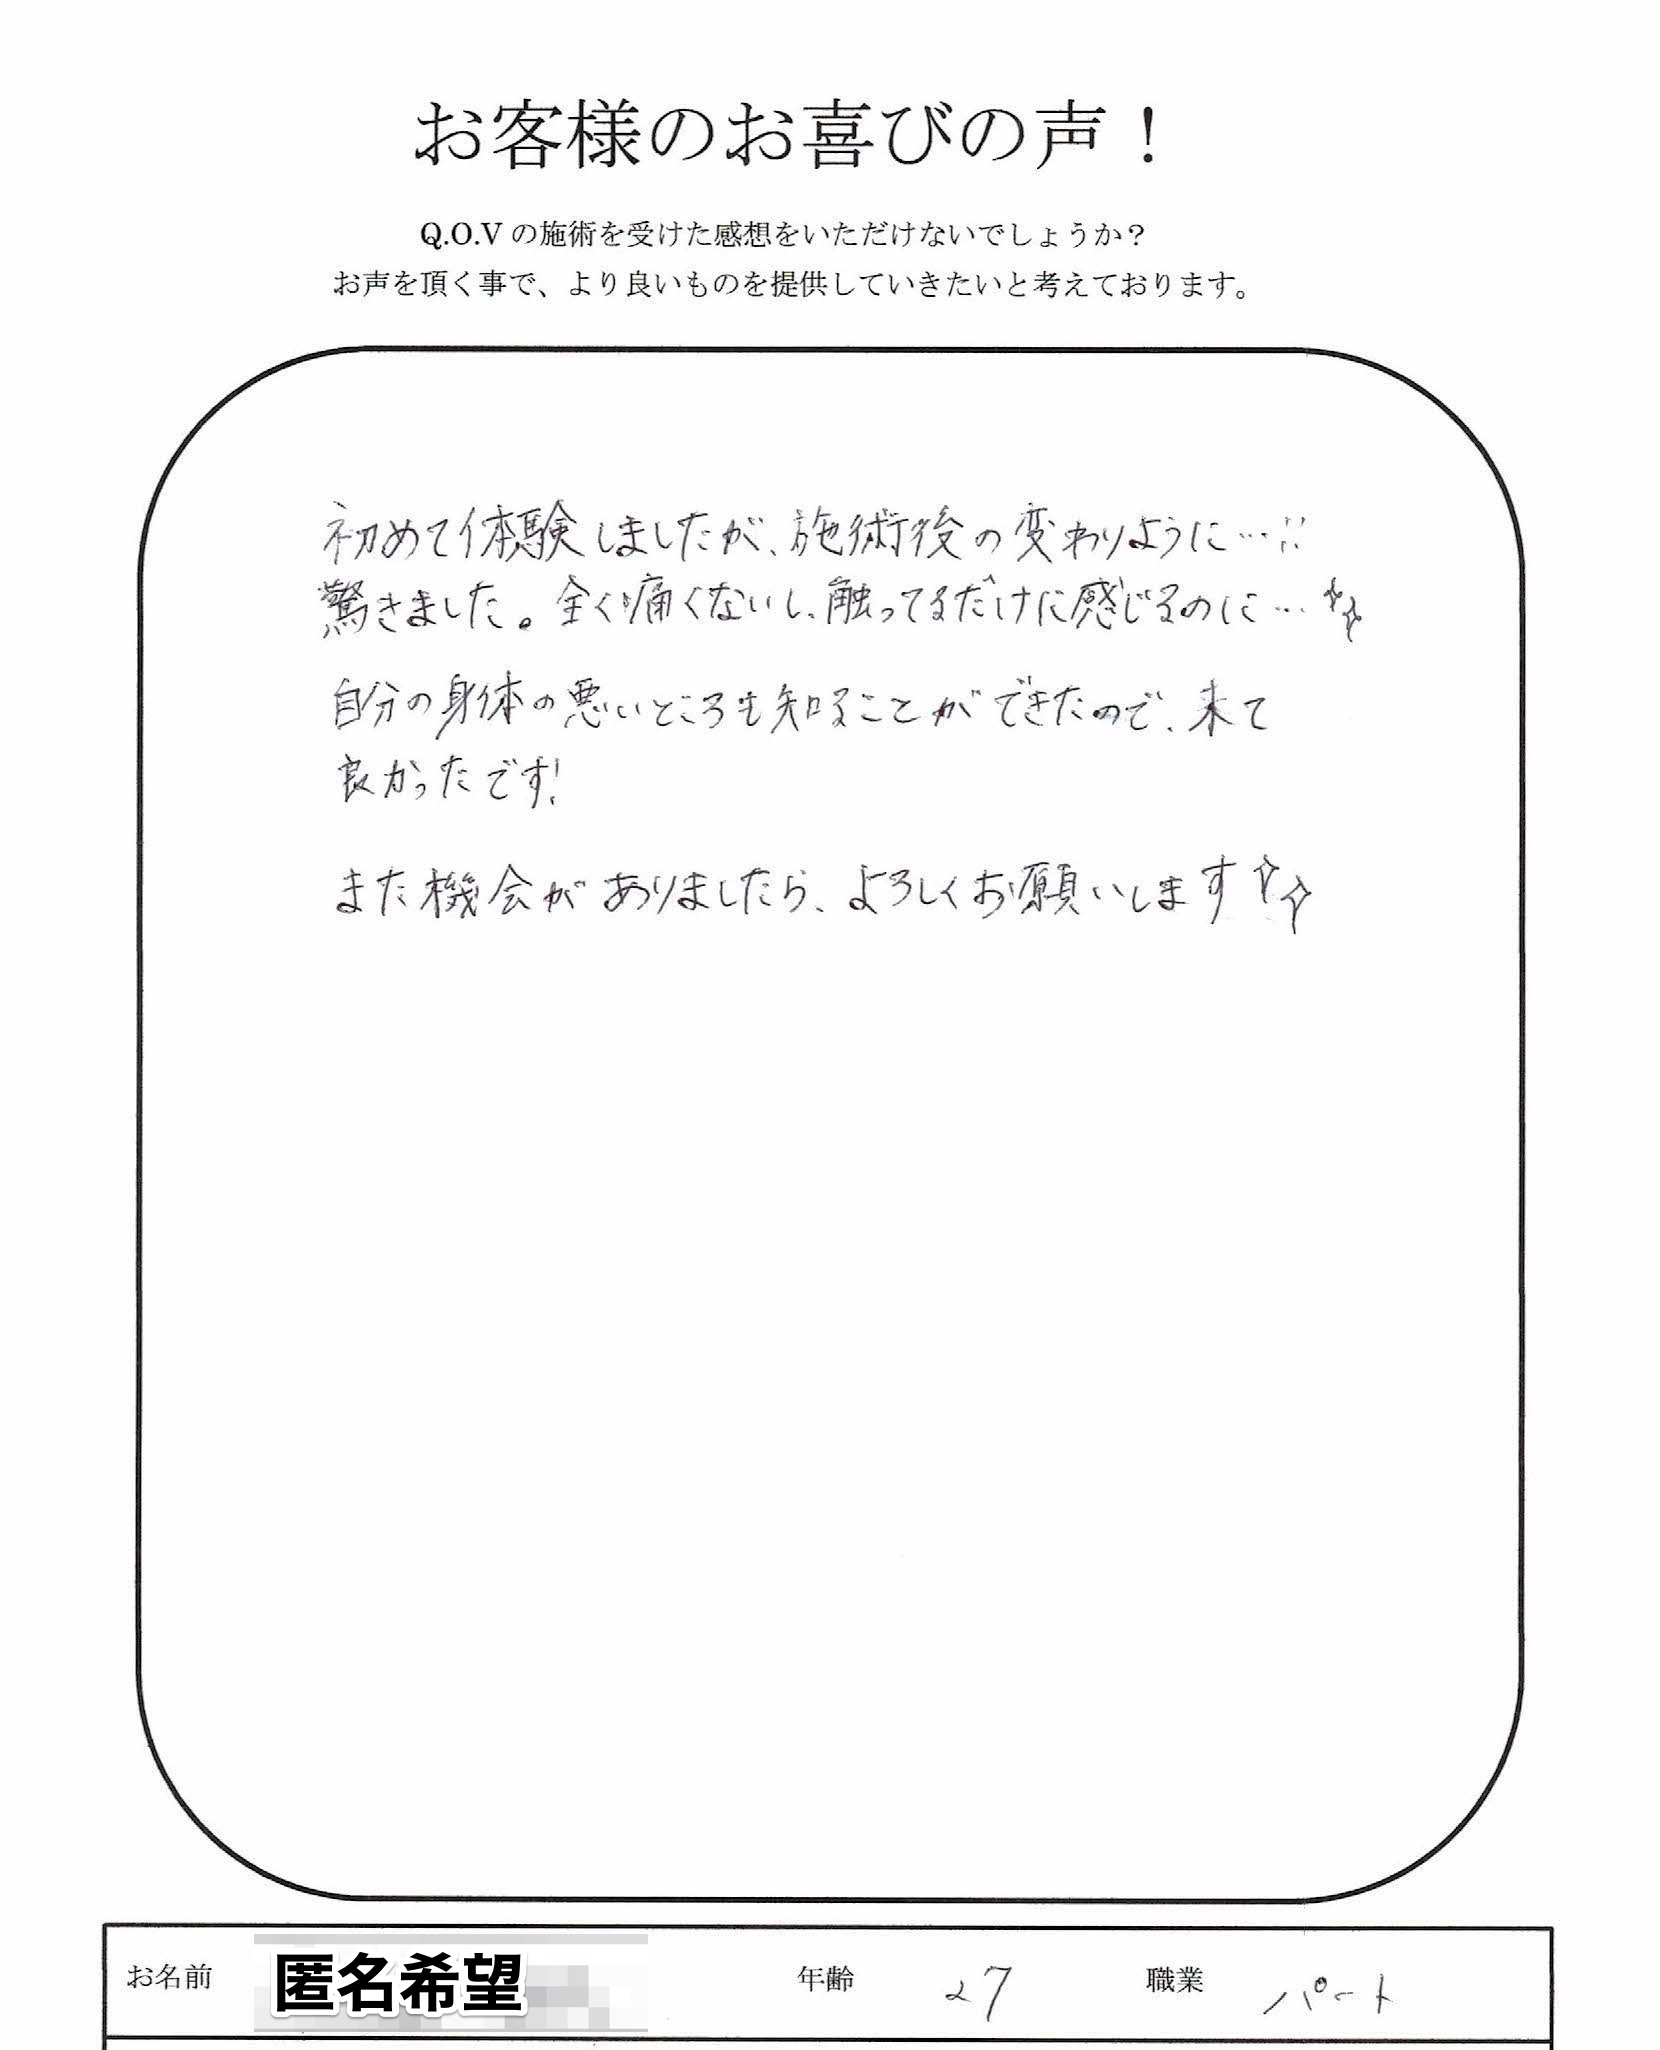 お客様のお喜びの声！
Q.O.V の施術を受けた感想をいただけないでしょうか？
お声を頂く事で、より良いものを提供していきたいと考えております。
初めて体験しましたが、施術後の変わりように…!!
驚きました。全く痛くないし、触ってるだけに感じるのに…
自分の身体の悪いところも知ることができたので、来て
良かったです!
また機会がありましたら、よろしくお願いします
お名前 匿名希望 年齢 27 職業 パート